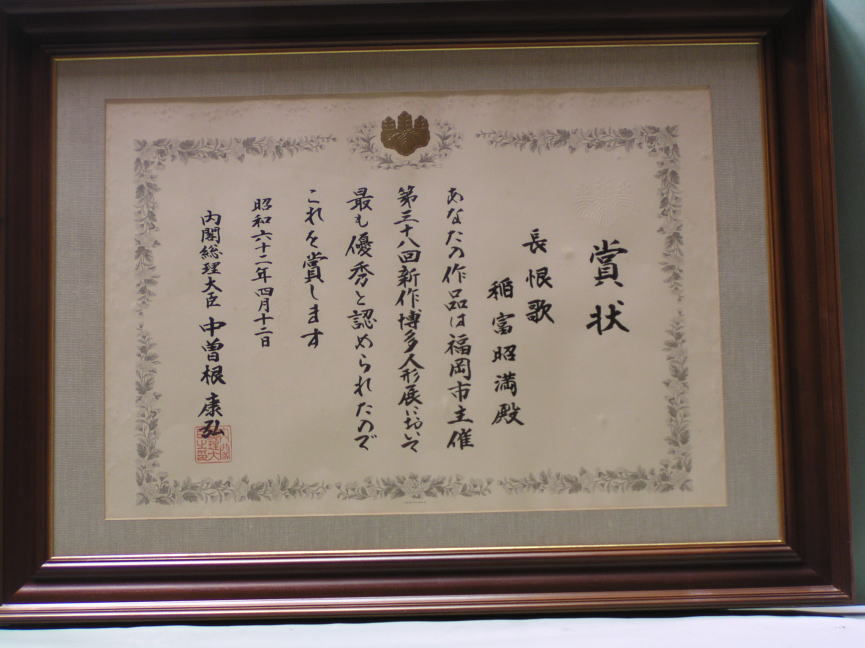 賞状
長恨歌
稲富昭満殿
あなたの作品は福岡市主催
第三十八回新作博多人形展において
最も優秀と認められたので
これを賞します
昭和六十二年四月十二日
内閣総理大臣 中曽根康弘